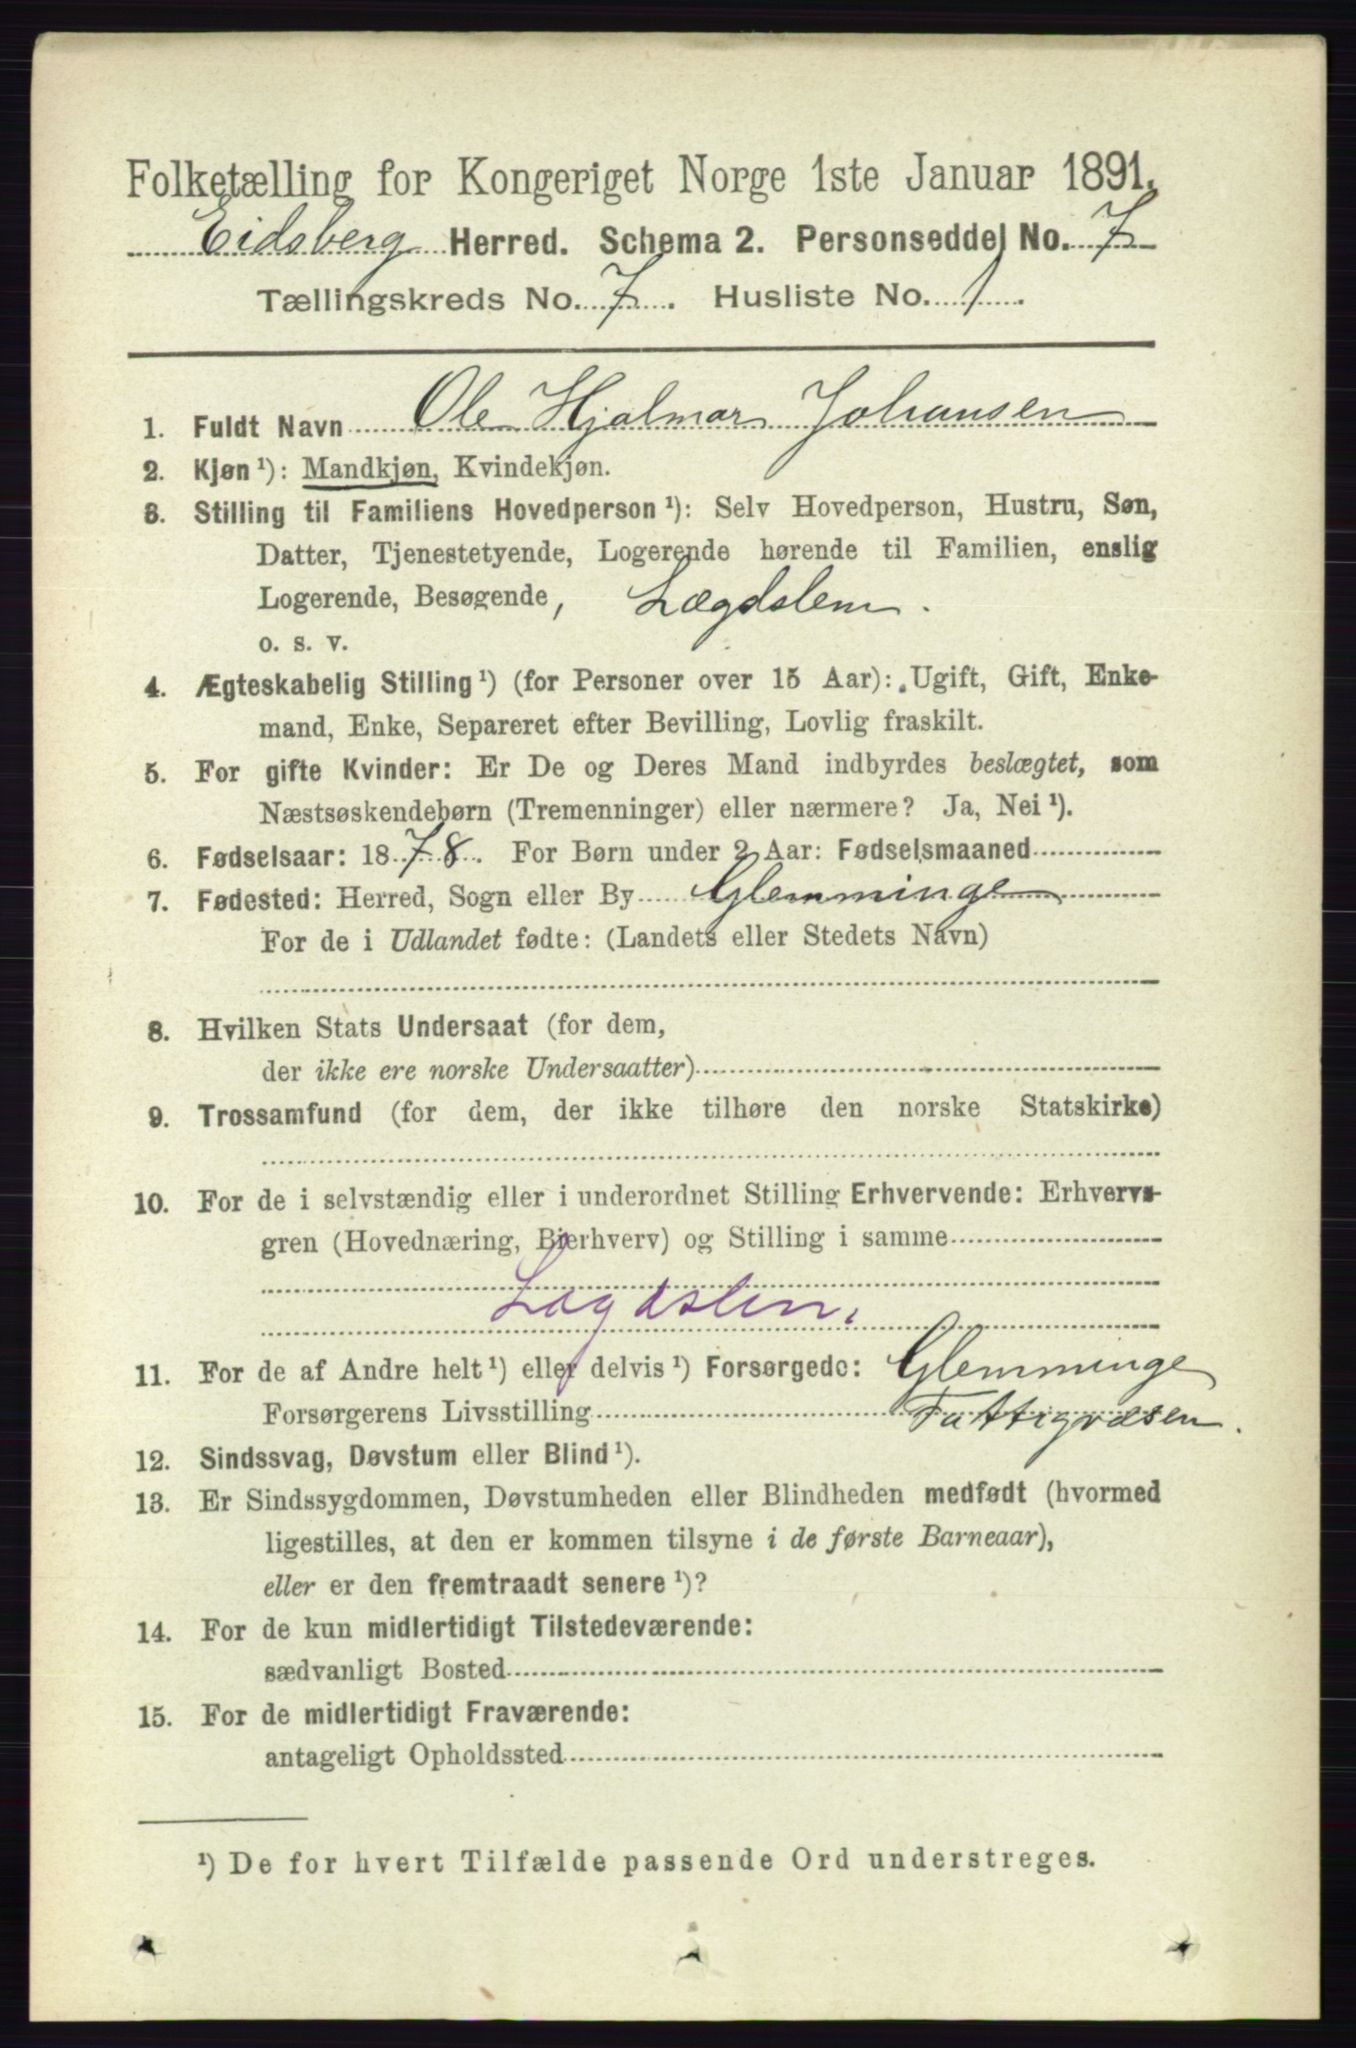 Folketælling for Kongeriget Norge 1ste Januar 1891.
Eidsberg Herred. Schema 2. Personseddel No. 7
Tællingskreds No. 7. Husliste No. 1.
1. Fuldt Navn Ole Hjalmar Johansen
2. Kjøn ¹): Mandkjøn, Kvindekjøn.
3. Stilling til Familiens Hovedperson ¹): Selv Hovedperson, Hustru, Søn,
Datter, Tjenestetyende, Logerende hørende til Familien, enslig
Logerende, Besøgende, Lægdslem.
o. s. v.
4. Ægteskabelig Stilling ¹) (for Personer over 15 Aar): Ugift, Gift, Enke-
mand, Enke, Separeret efter Bevilling, Lovlig fraskilt.
5. For gifte Kvinder: Er De og Deres Mand indbyrdes beslægtet, som
Næstsøskendebørn (Tremenninger) eller nærmere? Ja, Nei ¹).
6. Fødselsaar: 1878. For Børn under 2 Aar: Fødselsmaaned
7. Fødested: Herred, Sogn eller By Glemminge
For de i Udlandet fødte: (Landets eller Stedets Navn)
8. Hvilken Stats Undersaat (for dem,
der ikke ere norske Undersaatter)
9. Trossamfund (for dem, der ikke tilhøre den norske Statskirke)
10. For de i selvstændig eller i underordnet Stilling Erhvervende: Erhvervs-
gren (Hovednæring, Bierhverv) og Stilling i samme
Lægdslem.
11. For de af Andre helt ¹) eller delvis ¹) Forsørgede: Glemminge
Forsørgerens Livsstilling Fattigvæsen.
12. Sindssvag, Døvstum eller Blind ¹).
13. Er Sindssygdommen, Døvstumheden eller Blindheden medfødt (hvormed
ligestilles, at den er kommen tilsyne i de første Barneaar),
eller er den fremtraadt senere ¹)?
14. For de kun midlertidigt Tilstedeværende:
sædvanligt Bosted
15. For de midlertidigt Fraværende:
antageligt Opholdssted
¹) De for hvert Tilfælde passende Ord understreges.